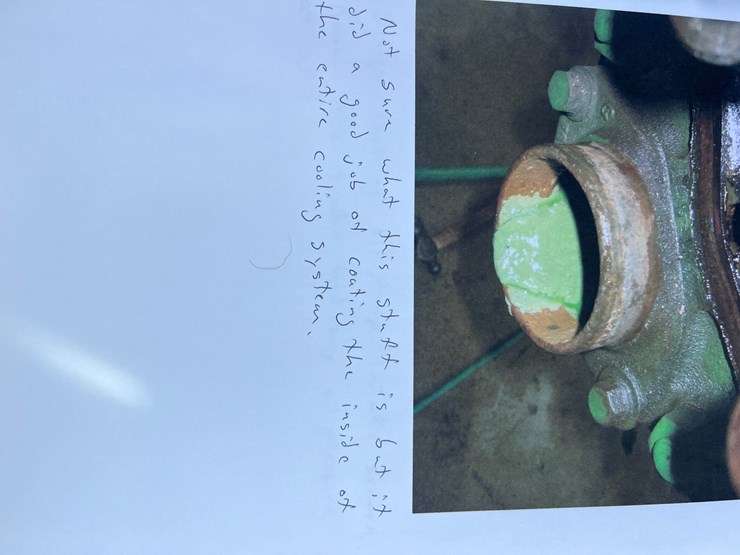 Not sure what this stuff is but it
did a good job of coating the inside of
the entire cooling system.